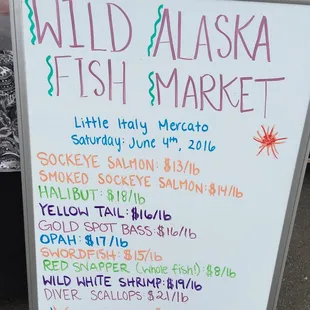 WILD ALASKA
FISH MARKET
Little Italy Mercato
Saturday: June 4th, 2016
SOCKEYE SALMON: $13/lb
SMOKED SOCKEYE SALMON: $14/lb
HALIBUT: $18/lb
YELLOW TAIL: $16/lb
GOLD SPOT BASS: $16/lb
OPAH: $17/lb
SWORDFISH: $15/lb
RED SNAPPER (whole fish!): $8/lb
WILD WHITE SHRIMP: $19/lb
DIVER SCALLOPS: $21/lb